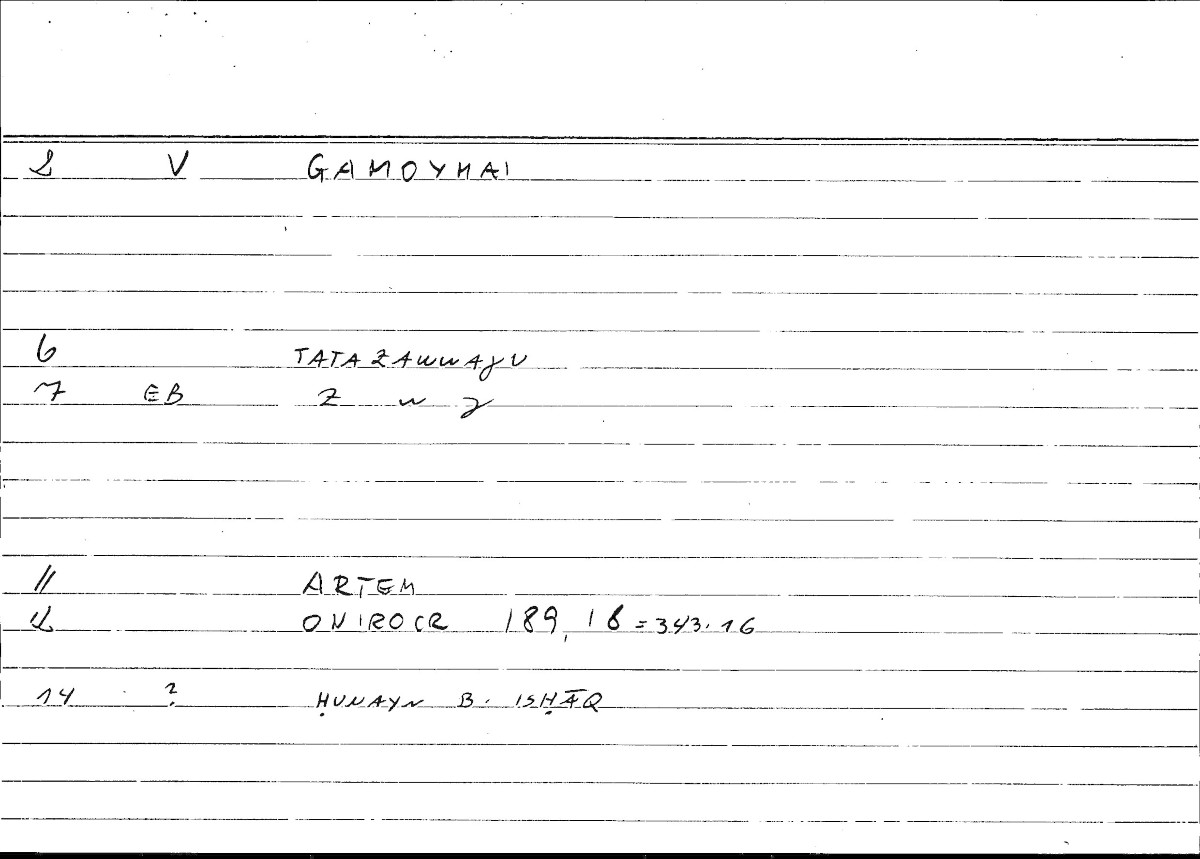 2 V GAMOYMAI
6 TATAZAWWAǦU
7 EB Z W Ǧ
11 ARTEM
12 ONIROCR 189,18 = 343.16
14 ? ḤUNAYN B. ISḤĀQ